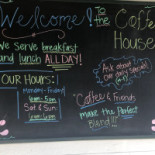 Welcome! to the Coffee House
We Serve breakfast
and lunch ALL DAY!
OUR HOURS:
Monday-Friday
6am-5pm
Sat & Sun
Ask about
our daily Special
Coffee & Friends
make the Perfect
Blend!!!